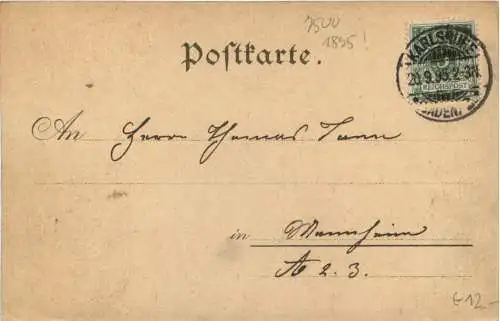 1895!
Postkarte.
KARLSRUHE
20.9.95.2-3N.
(BADEN)
REICHSPOST
An Herrn Thomas
in Mannheim
A 2. 3.
€12.-